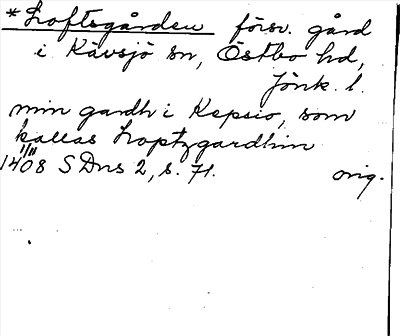 *Loftsgården försv. gård
i Kävsjö sn, Östbo hd,
Jönk. l.
min gardh i Kepsio, som
kallas Loptzgardhin
11/11
1408 SDns 2, s. 71. orig.